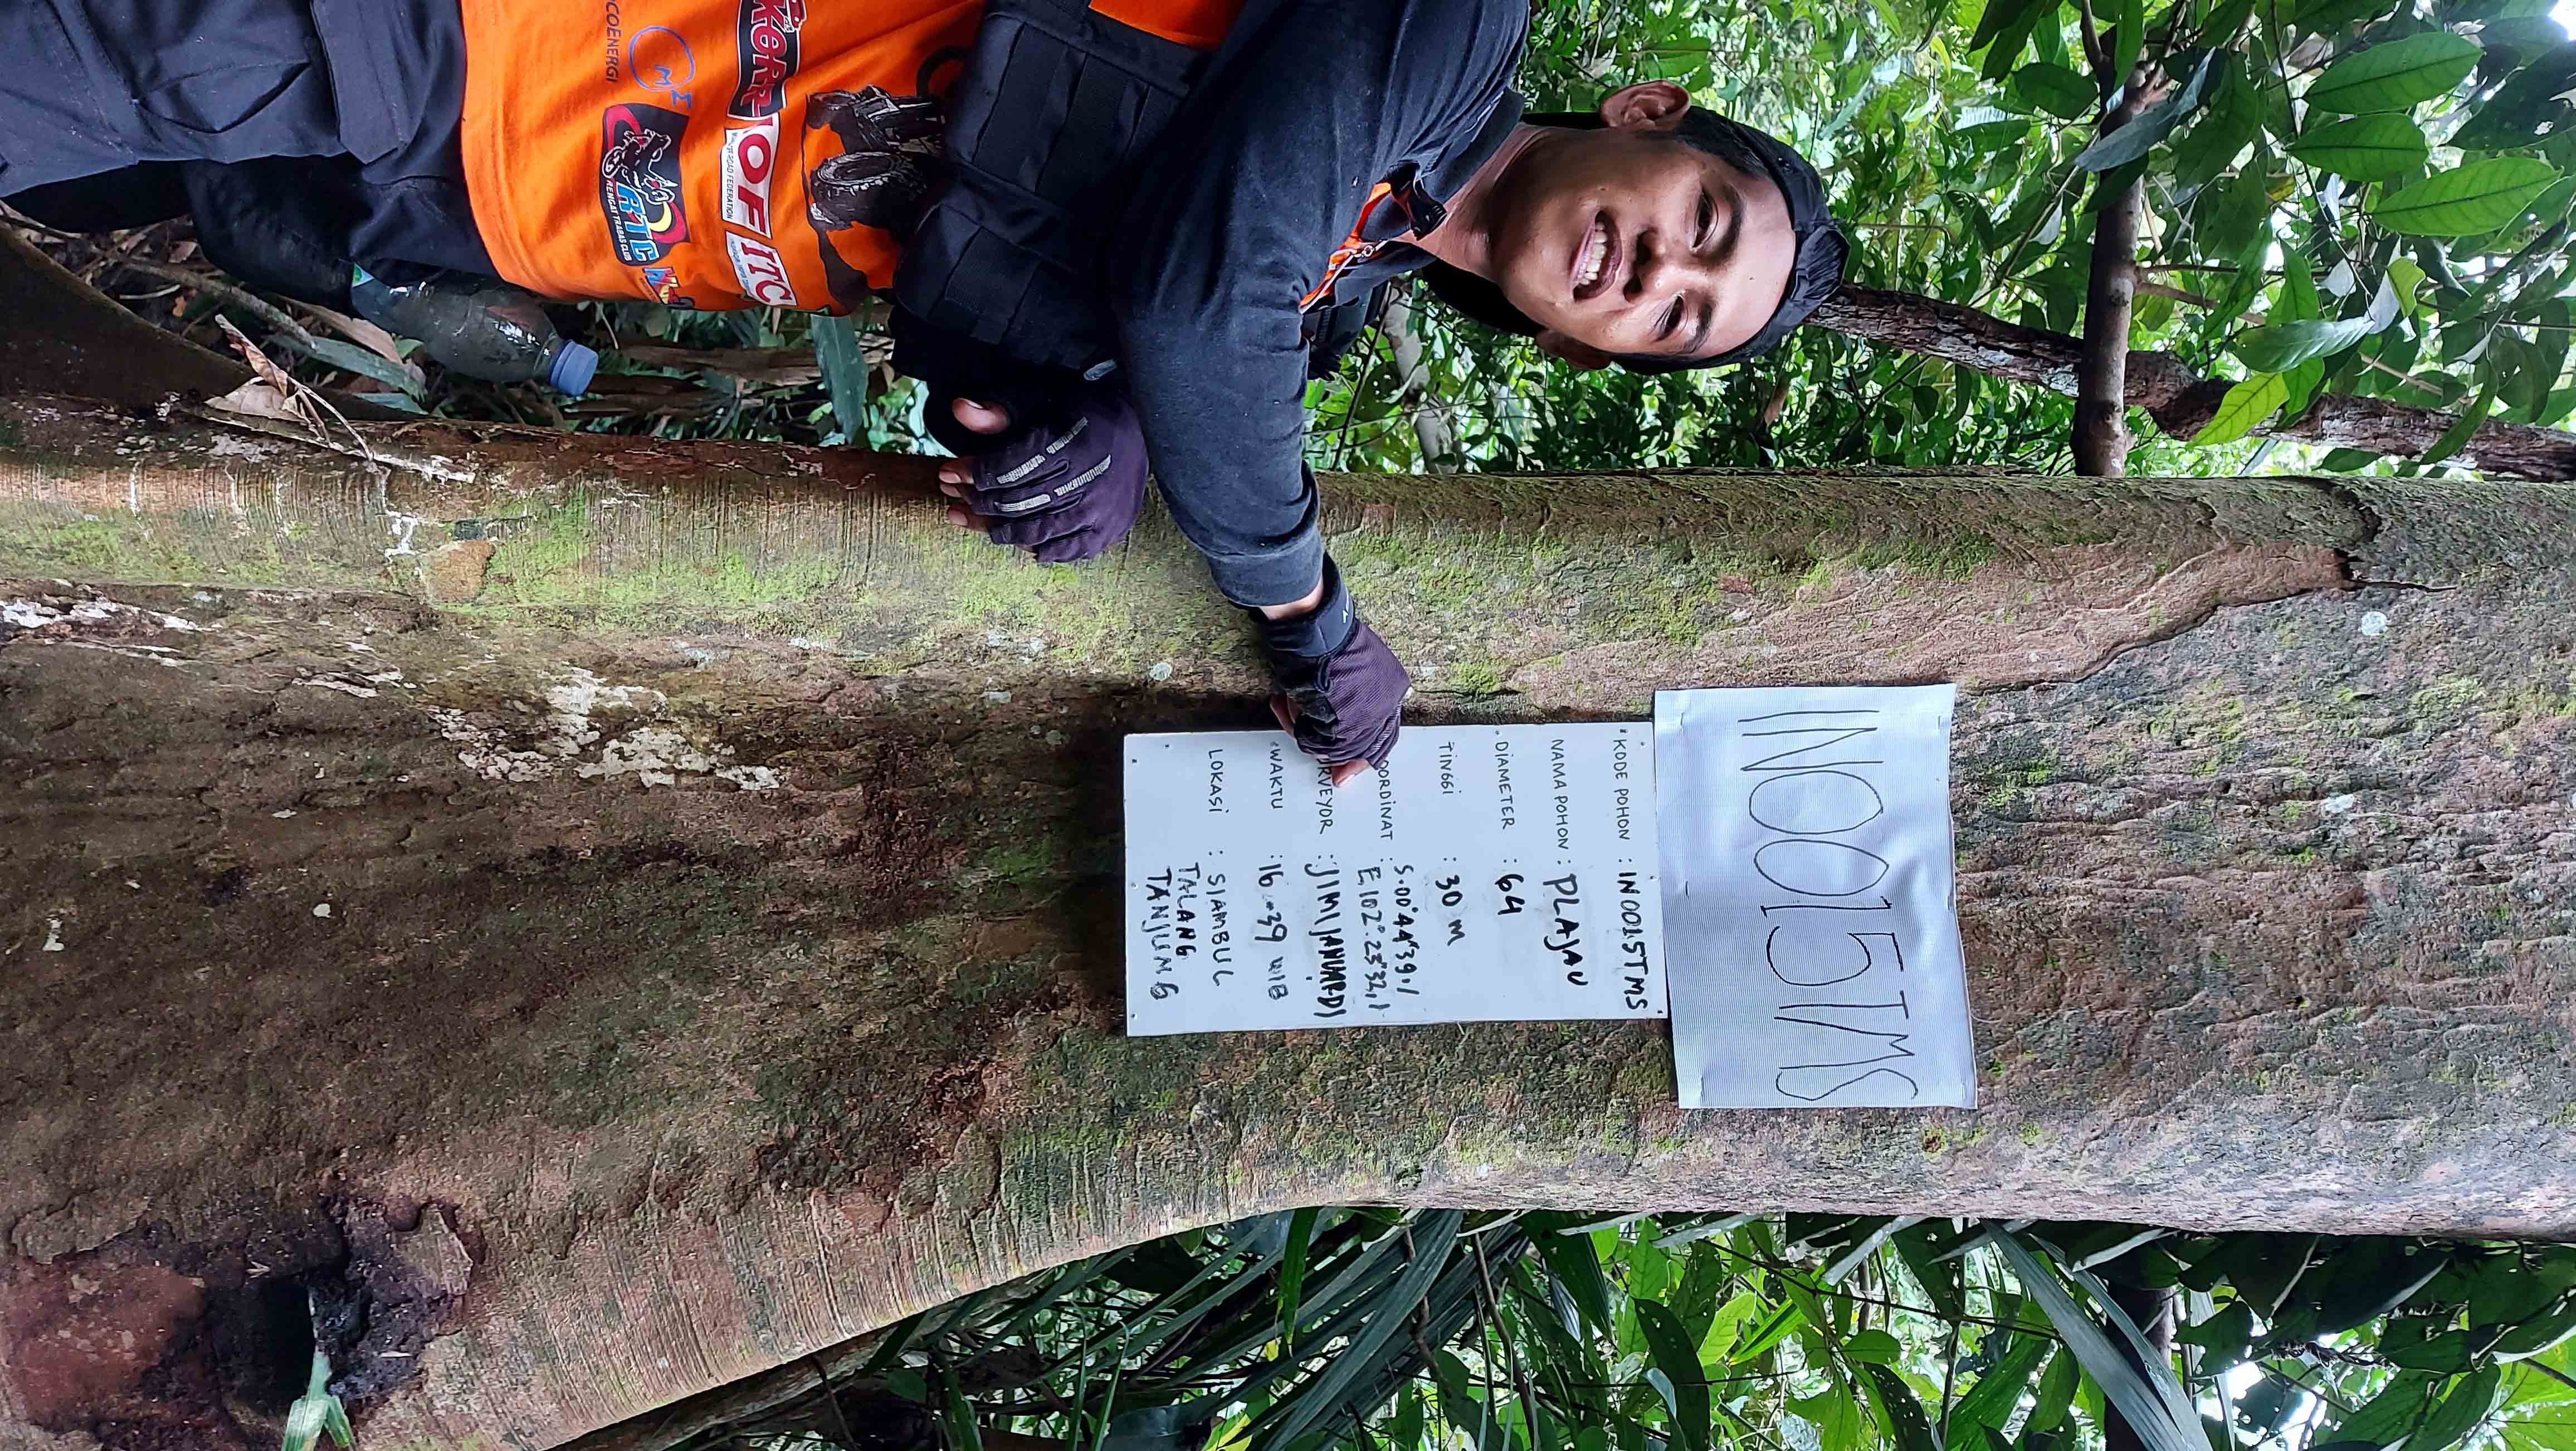 IN0015TMS
KODE POHON : IN0015TMS
NAMA POHON : PLAJAU
DIAMETER : 64
TINGGI : 30 M
OORDINAT : S.00°44"39.1
E.102°.23"32,1
RVEYOR : JIMI JANUARDI
WAKTU : 16 .39 WIB
LOKASI : SIAMBUL
TALANG
TANJUNG
KORR
IOF
ROAD FEDERATION
ITC
MΣ
COENERGI
RTC
RENGAT TRABAS CLUB